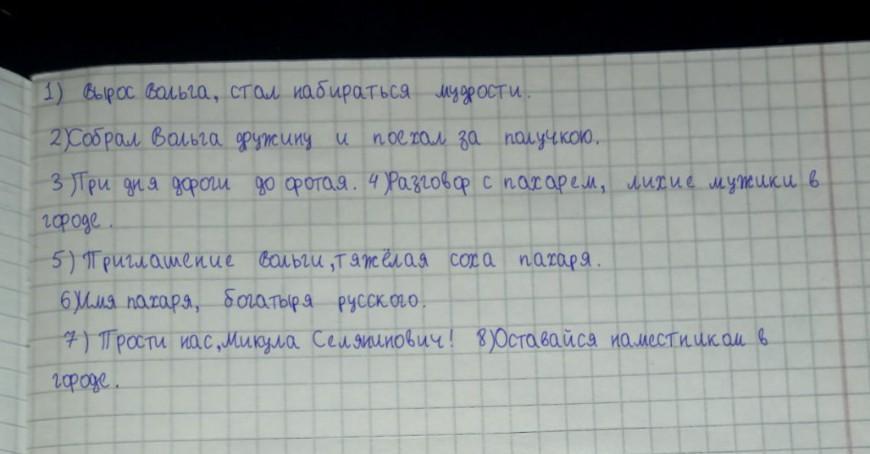 1) Вырос Вольга, стал набираться мудрости.
2) Собрал Вольга дружину и поехал за получкою.
3) Три дня дороги до оротая. 4) Разговор с пахарем, лихие мужики в
городе.
5) Приглашение Вольги, тяжёлая соха пахаря.
6) Имя пахаря, богатыря русского.
7) Прости нас, Микула Селянинович! 8) Оставайся наместником в
городе.